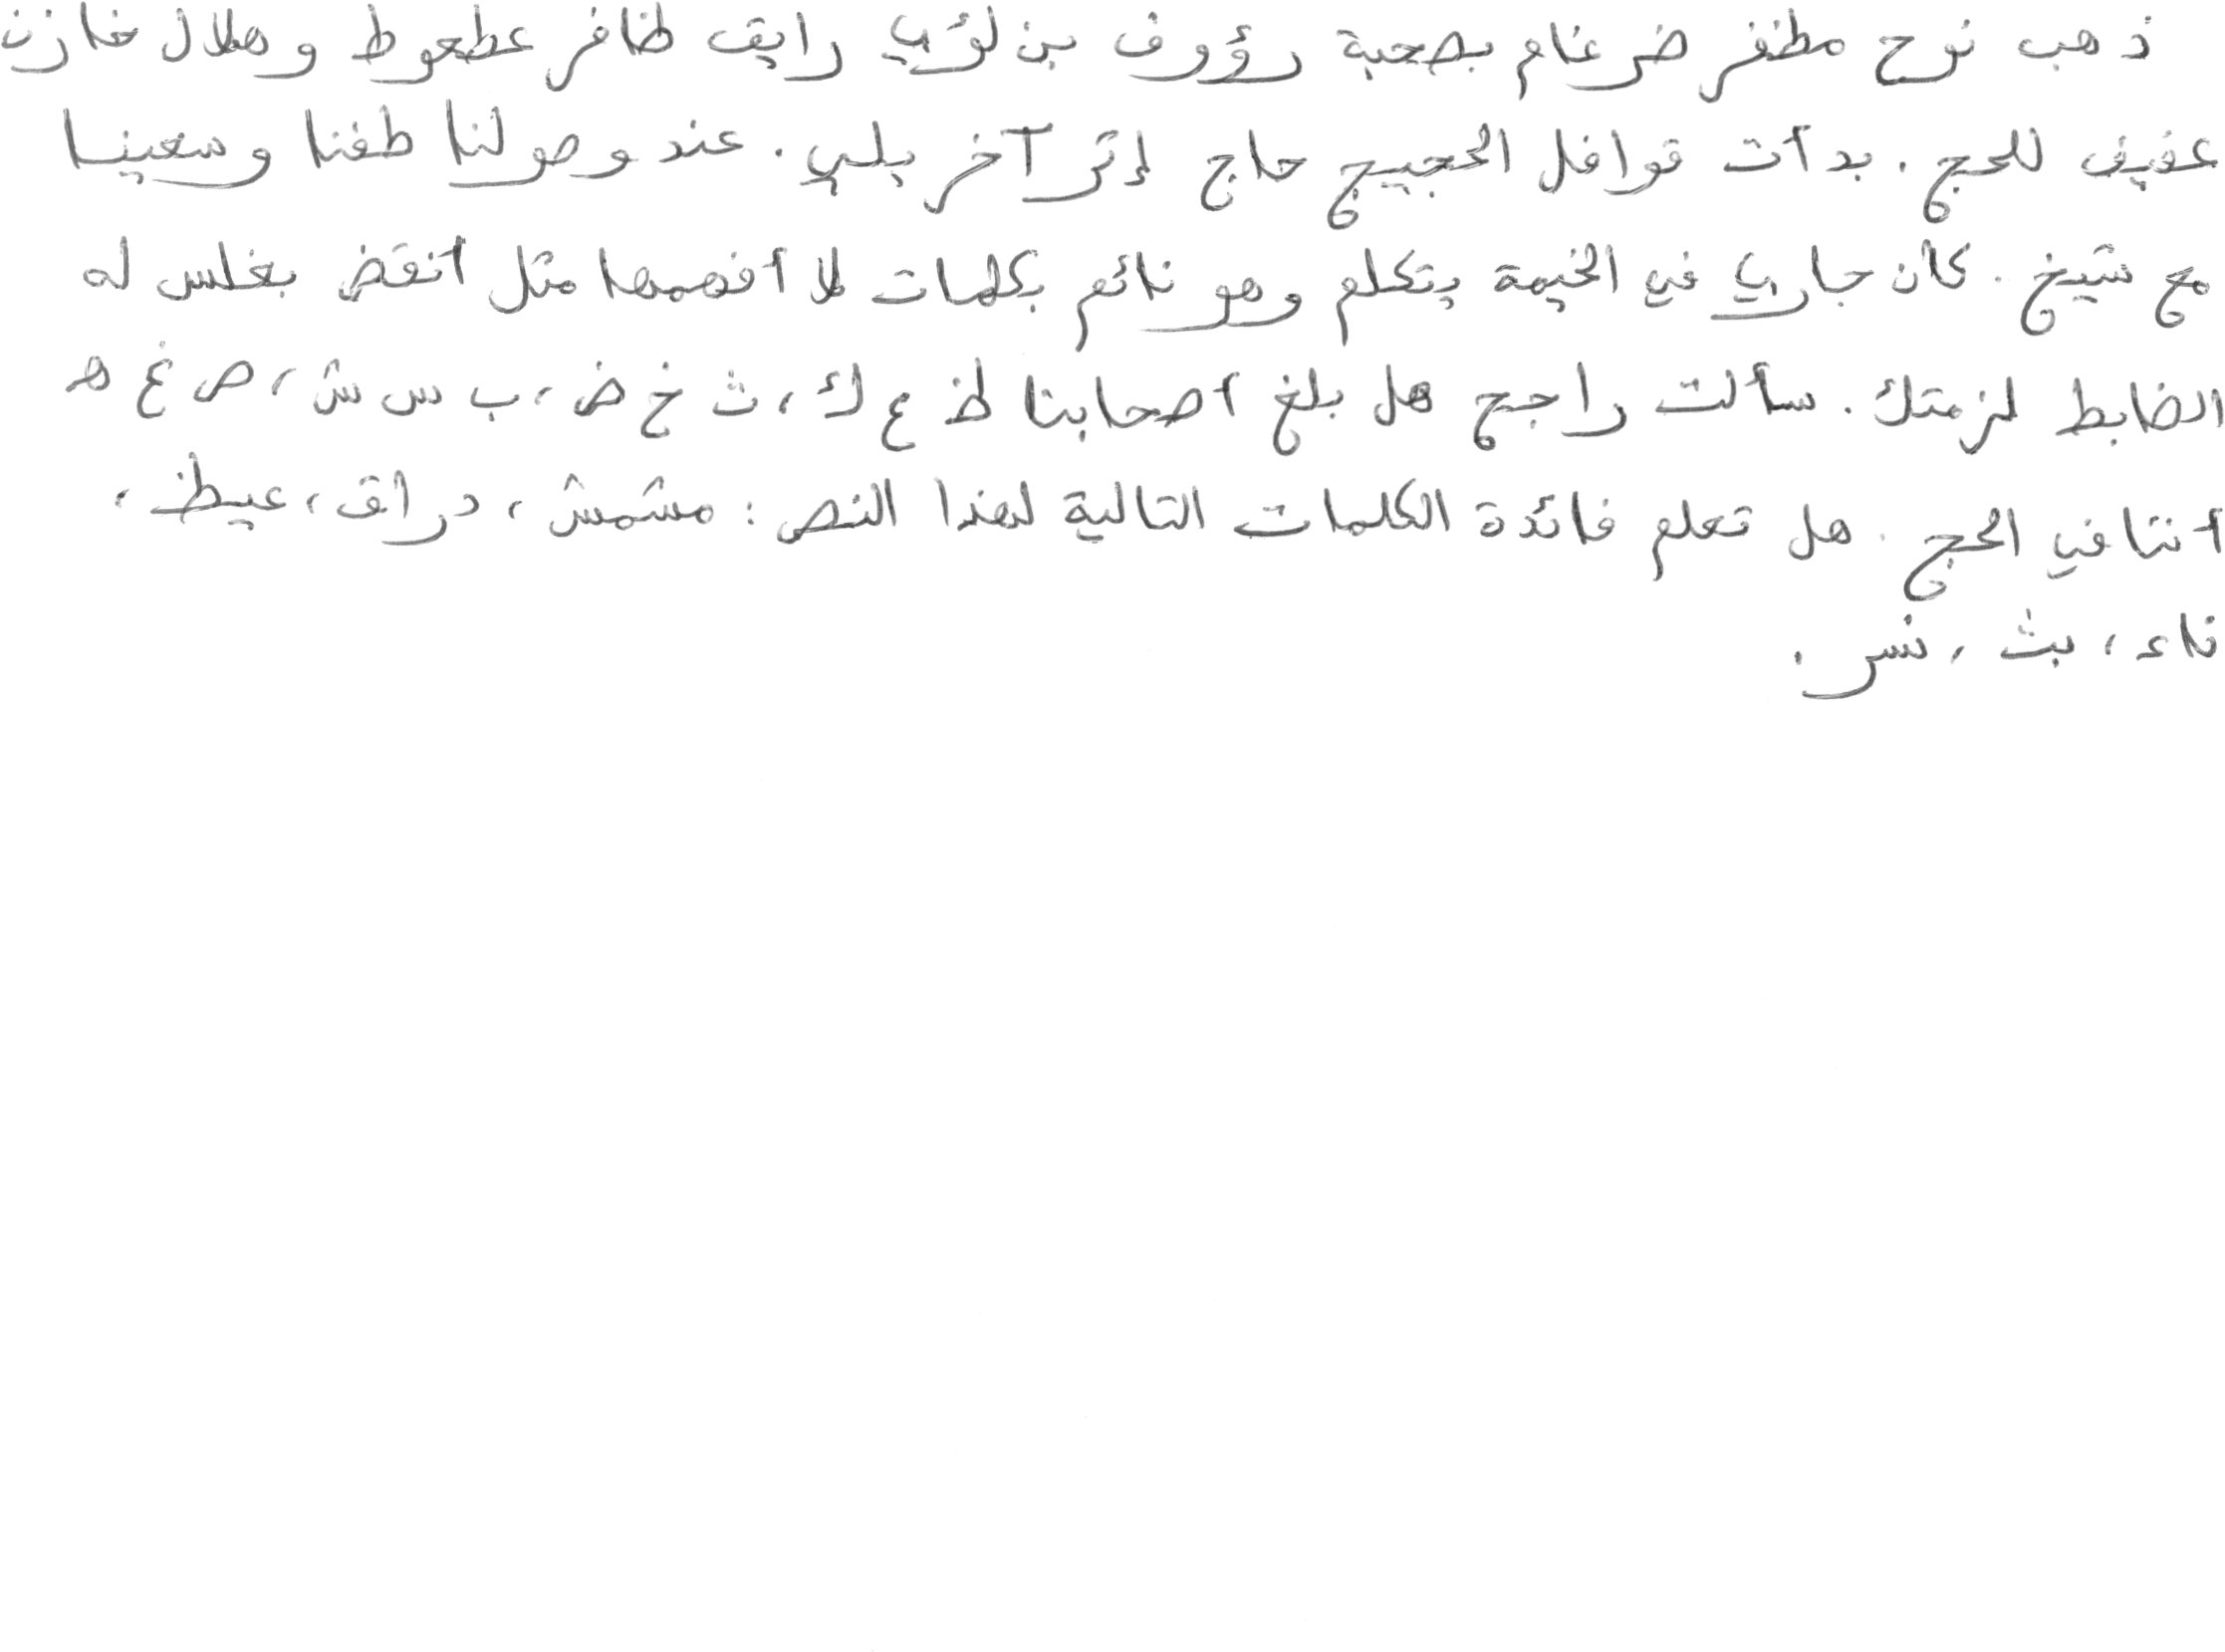 ذهب نوح مظفر ضرغام بصحبة رؤوف بن لؤي رايق ظافر عطعوط وهلال غازن
عفيف للحج. بدأت قوافل الحجيج حاج إثر آخر يلبي. عند وصولنا طفنا وسعينا
مع شيخ. كان جاري في الخيمة يتكلم وهو نائم بكلمات لا أفهمها مثل أنقض بغلس له
الضابط لزمتك. سألت راجح هل بلغ أصحابنا ظ ع ك، ث خ ض، ب س ش، ص غ ه
أننا في الحج. هل تعلم فائدة الكلمات التالية لهذا النص: مشمش، دراق، غيظ،
ناء، بث، نسر.